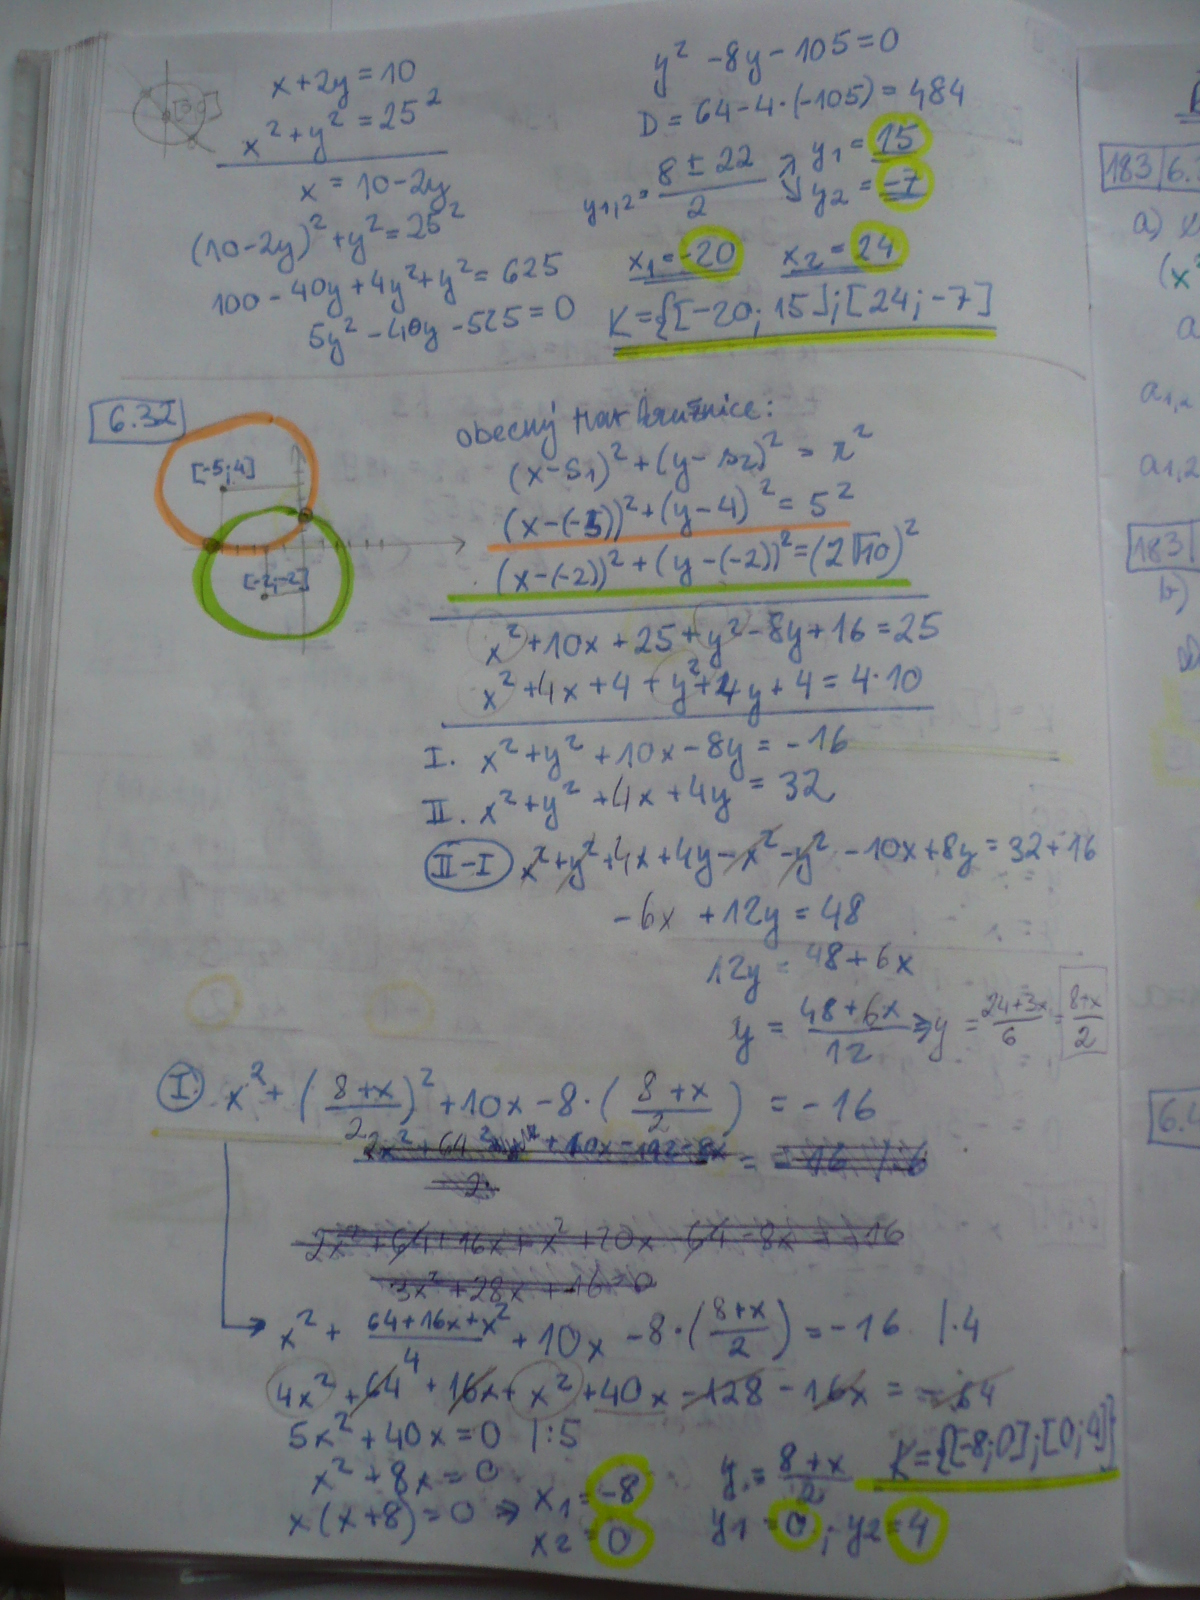 x + 2y = 10
x² + y² = 25²
x = 10 - 2y
(10-2y)² + y² = 25²
100 - 40y + 4y² + y² = 625
5y² - 40y - 525 = 0
y² - 8y - 105 = 0
D = 64 - 4·(-105) = 484
y1,2 = (8 ± 22)/2
y1 = 15
y2 = -7
x1 = -20 x2 = 24
K={[-20; 15]; [24; -7]
6.32
[-5;4]
[-2;-2]
obecný tvar kružnice:
(x-s1)² + (y-s2)² = r²
(x-(-5))² + (y-4)² = 5²
(x-(-2))² + (y-(-2))² = (2√10)²
x² + 10x + 25 + y² - 8y + 16 = 25
x² + 4x + 4 + y² + 4y + 4 = 4·10
I. x² + y² + 10x - 8y = -16
II. x² + y² + 4x + 4y = 32
II-I x² + y² + 4x + 4y - x² - y² - 10x + 8y = 32 + 16
-6x + 12y = 48
12y = 48 + 6x
y = (48+6x)/12 ⇒ y = (24+3x)/6 = (8+x)/2
I. x² + ((8+x)/2)² + 10x - 8·((8+x)/2) = -16
2x² + 64 + 16x + x² + 20x - 64 - 8x = -16
3x² + 28x + 16 = 0
x² + (64+16x+x²)/4 + 10x - 8·((8+x)/2) = -16 |·4
4x² + 64 + 16x + x² + 40x - 128 - 16x = -64
5x² + 40x = 0 |:5
x² + 8x = 0
x(x+8) = 0 ⇒ x1 = -8
x2 = 0
y = (8+x)/2
y1 = 0; y2 = 4
K={[-8;0];[0;4]}
183 6.
a) x
(x²
a
a1,2
a1,2
183
b)
6.